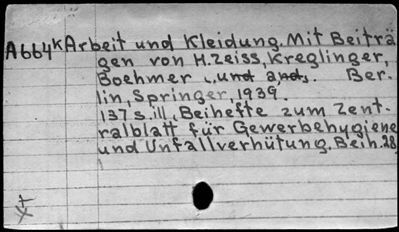 A664k Arbeit und Kleidung. Mit Beiträ
gen von H. Zeiss, Kreglinger,
Boehmer, und and. Ber-
lin, Springer, 1939.
137 s. ill., Beihefte zum Zent-
ralblatt für Gewerbehygiene
und Unfallverhütung. Beih. 28